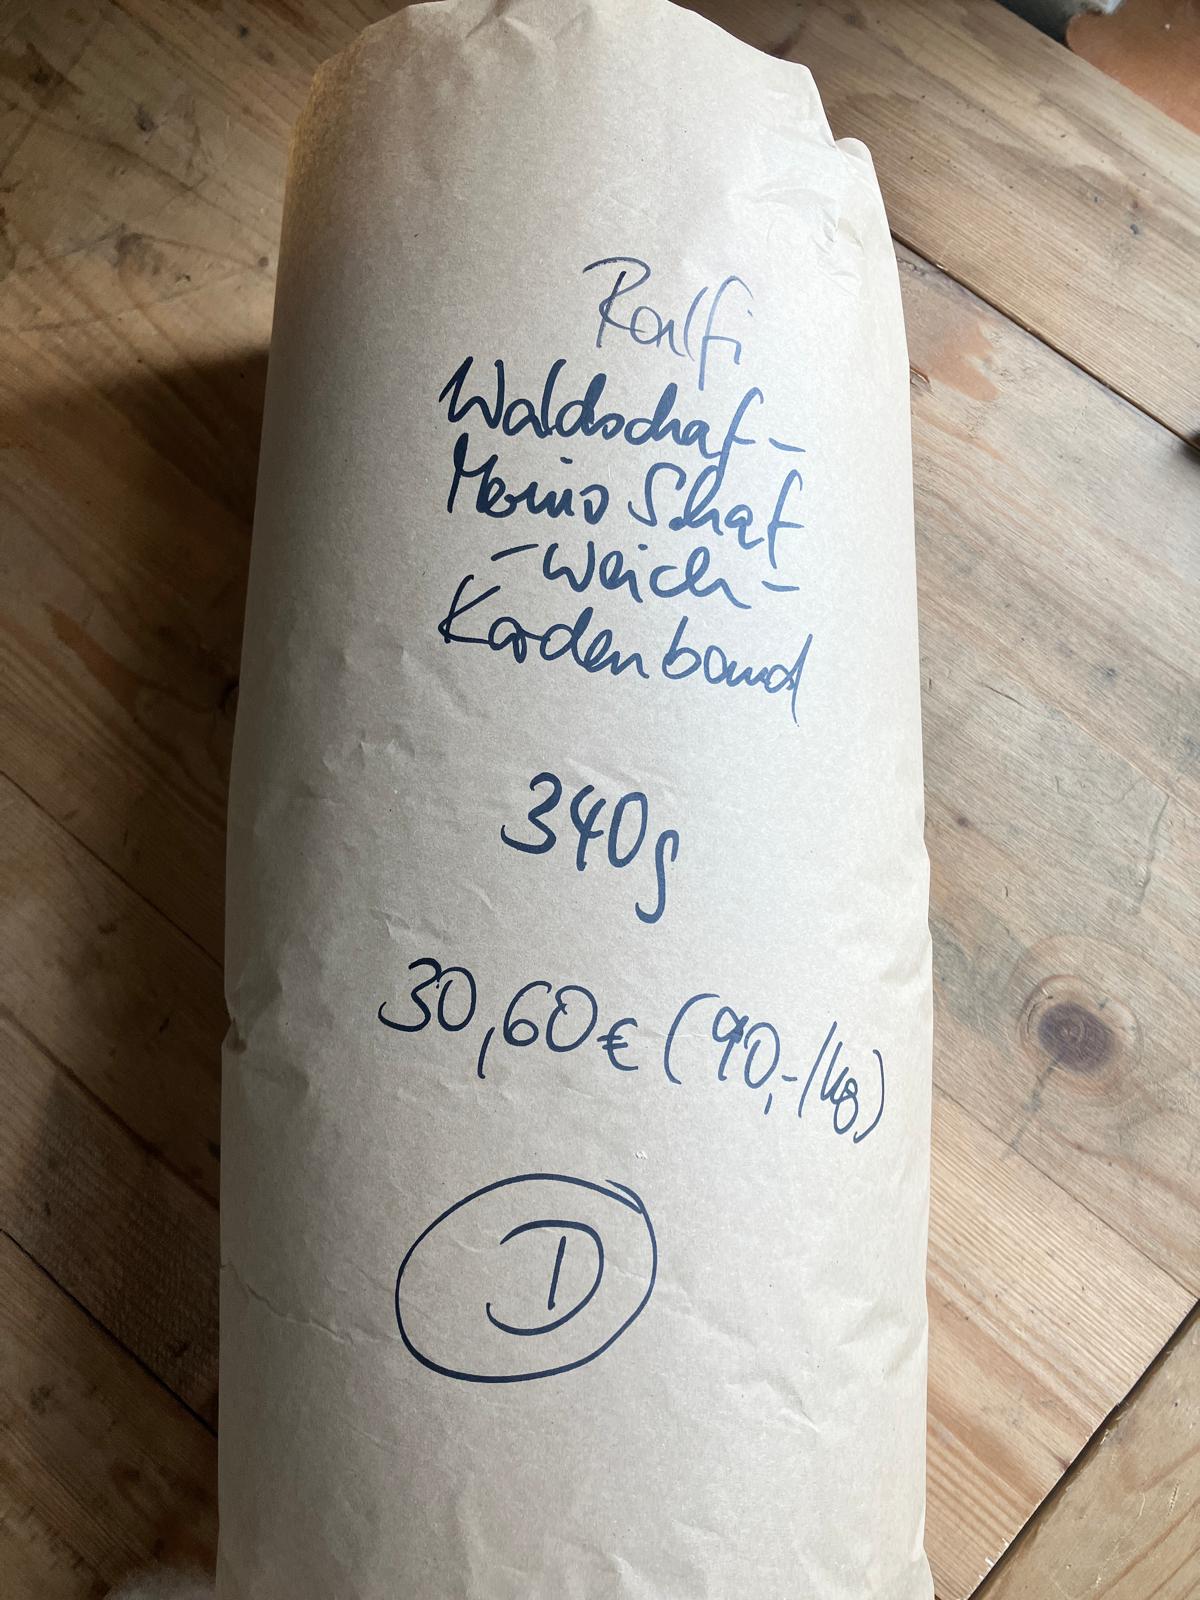 Ralfi
Waldschaf-
Merino Schaf
-weich-
Kardenband
340g
30,60€ (90,-/kg)
D